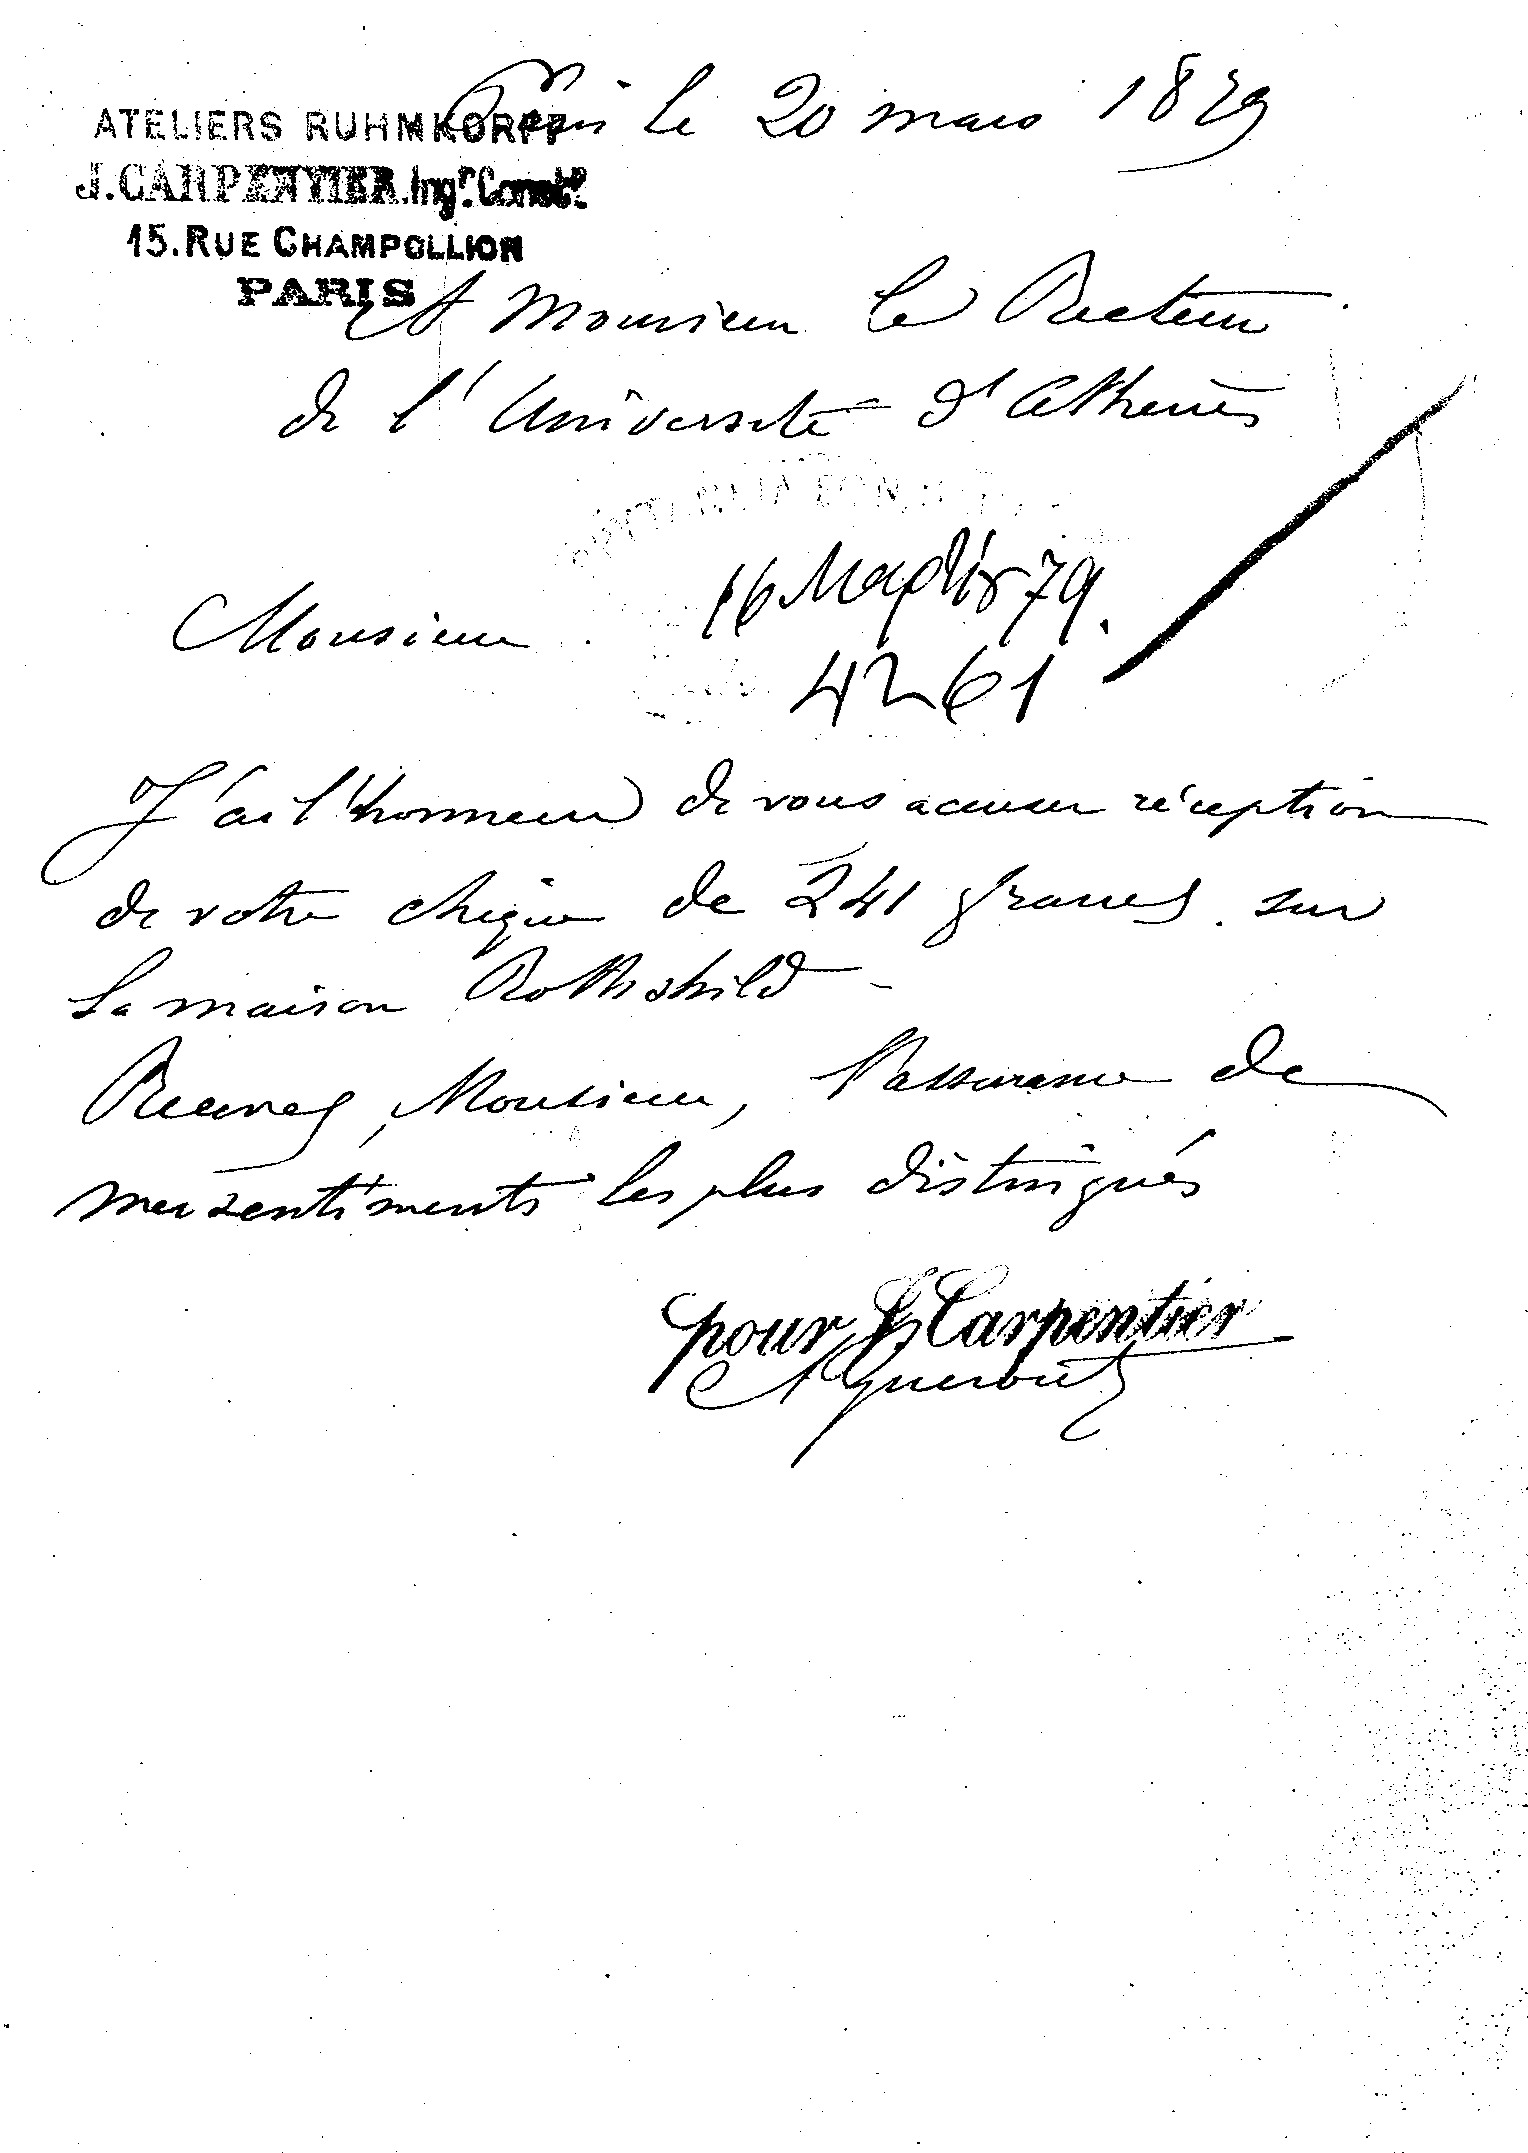 Paris le 20 mars 1879
ATELIERS RUHMKORFF
J. CARPENTIER. Ingr. Constr.
15. RUE CHAMPOLLION
PARIS
A Monsieur le Recteur
de l'Université d'Athènes
16 Μαρτίου 79.
Monsieur
4261
J'ai l'honneur de vous accuser réception
de votre chèque de 241 francs sur
la maison Rothshild
Recevez, Monsieur, l'assurance de
mes sentiments les plus distingués
pour J. Carpentier
A Guerout